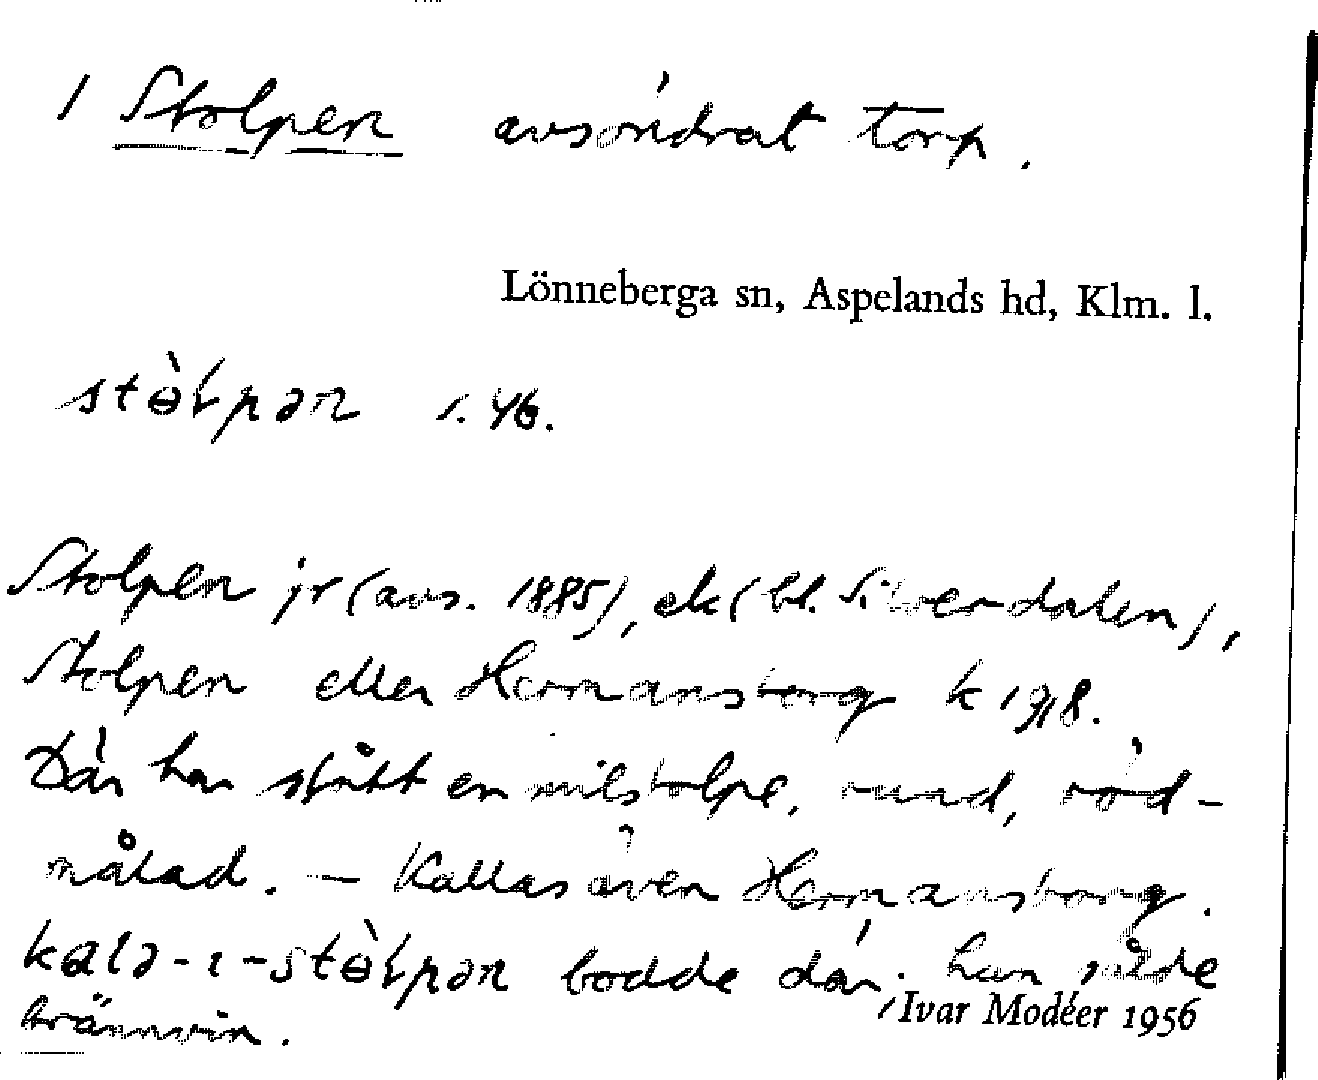 1 Stolpen avsöndrat torp.
Lönneberga sn, Aspelands hd, Klm. l.
stɵ̀ɽpən s. 46.
Stolpen jr (avs. 1885), ek (bl. Silverdalen),
Stolpen eller Hermansborg k 1918.
Där har stått en milstolpe, rund, röd-
målad. — Kallas även Hermansborg.
kalə-ı-stɵ̀ɽpən bodde där; han sålde
brännvin.
Ivar Modéer 1956